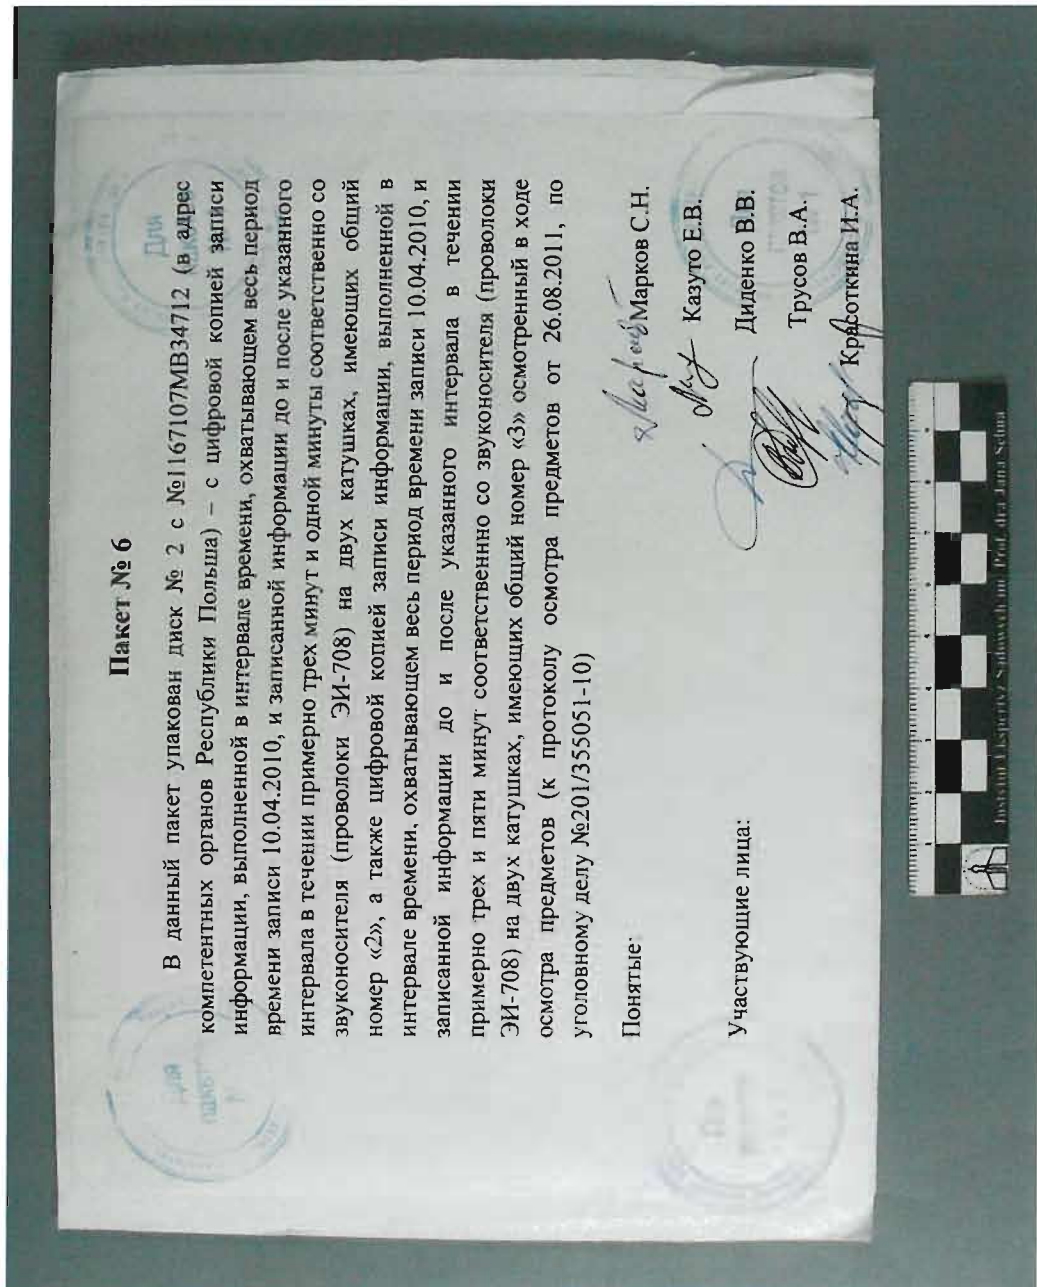 Пакет № 6
В данный пакет упакован диск № 2 с №1167107МВ34712 (в адрес
компетентных органов Республики Польша) – с цифровой копией записи
информации, выполненной в интервале времени, охватывающем весь период
времени записи 10.04.2010, и записанной информации до и после указанного
интервала в течении примерно трех минут и одной минуты соответственно со
звуконосителя (проволоки ЭИ-708) на двух катушках, имеющих общий
номер «2», а также цифровой копией записи информации, выполненной в
интервале времени, охватывающем весь период времени записи 10.04.2010, и
записанной информации до и после указанного интервала в течении
примерно трех и пяти минут соответственнно со звуконосителя (проволоки
ЭИ-708) на двух катушках, имеющих общий номер «3» осмотренный в ходе
осмотра предметов (к протоколу осмотра предметов от 26.08.2011, по
уголовному делу №201/355051-10)
Понятые:
Марков С.Н.
Казуто Е.В.
Участвующие лица:
Диденко В.В.
Трусов В.А.
Красоткина И.А.
Для
Для
1 2 3 4 5 6 7 8 9
Instytut Ekspertyz Sądowych im. Prof. dra Jana Sehna